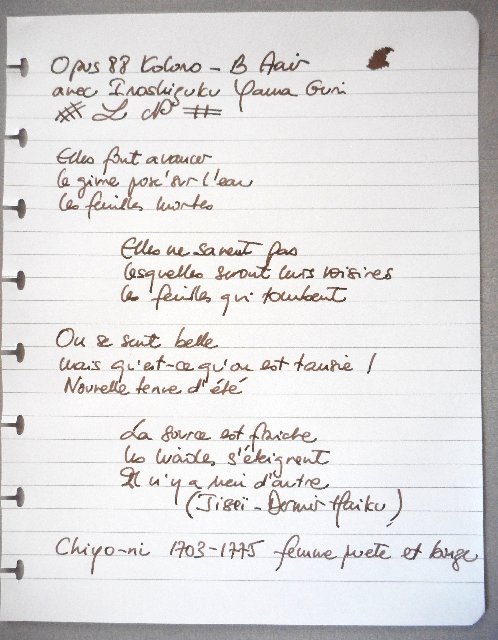 Opus 88 Koloro - B Flair
avec Iroshizuku Yama Guri
# L N° #
Elles font avancer
le givre posé sur l'eau
les feuilles mortes
Elles ne savent pas
lesquelles seront leurs voisines
les feuilles qui tombent
On se sent belle
mais qu'est-ce qu'on est transie !
Nouvelle tenue d'été
La source est fraîche
les lucioles s'éteignent
Il n'y a rien d'autre
(Jiseï - Dernier Haïku)
Chiyo-ni 1703-1775 femme poète et bonze